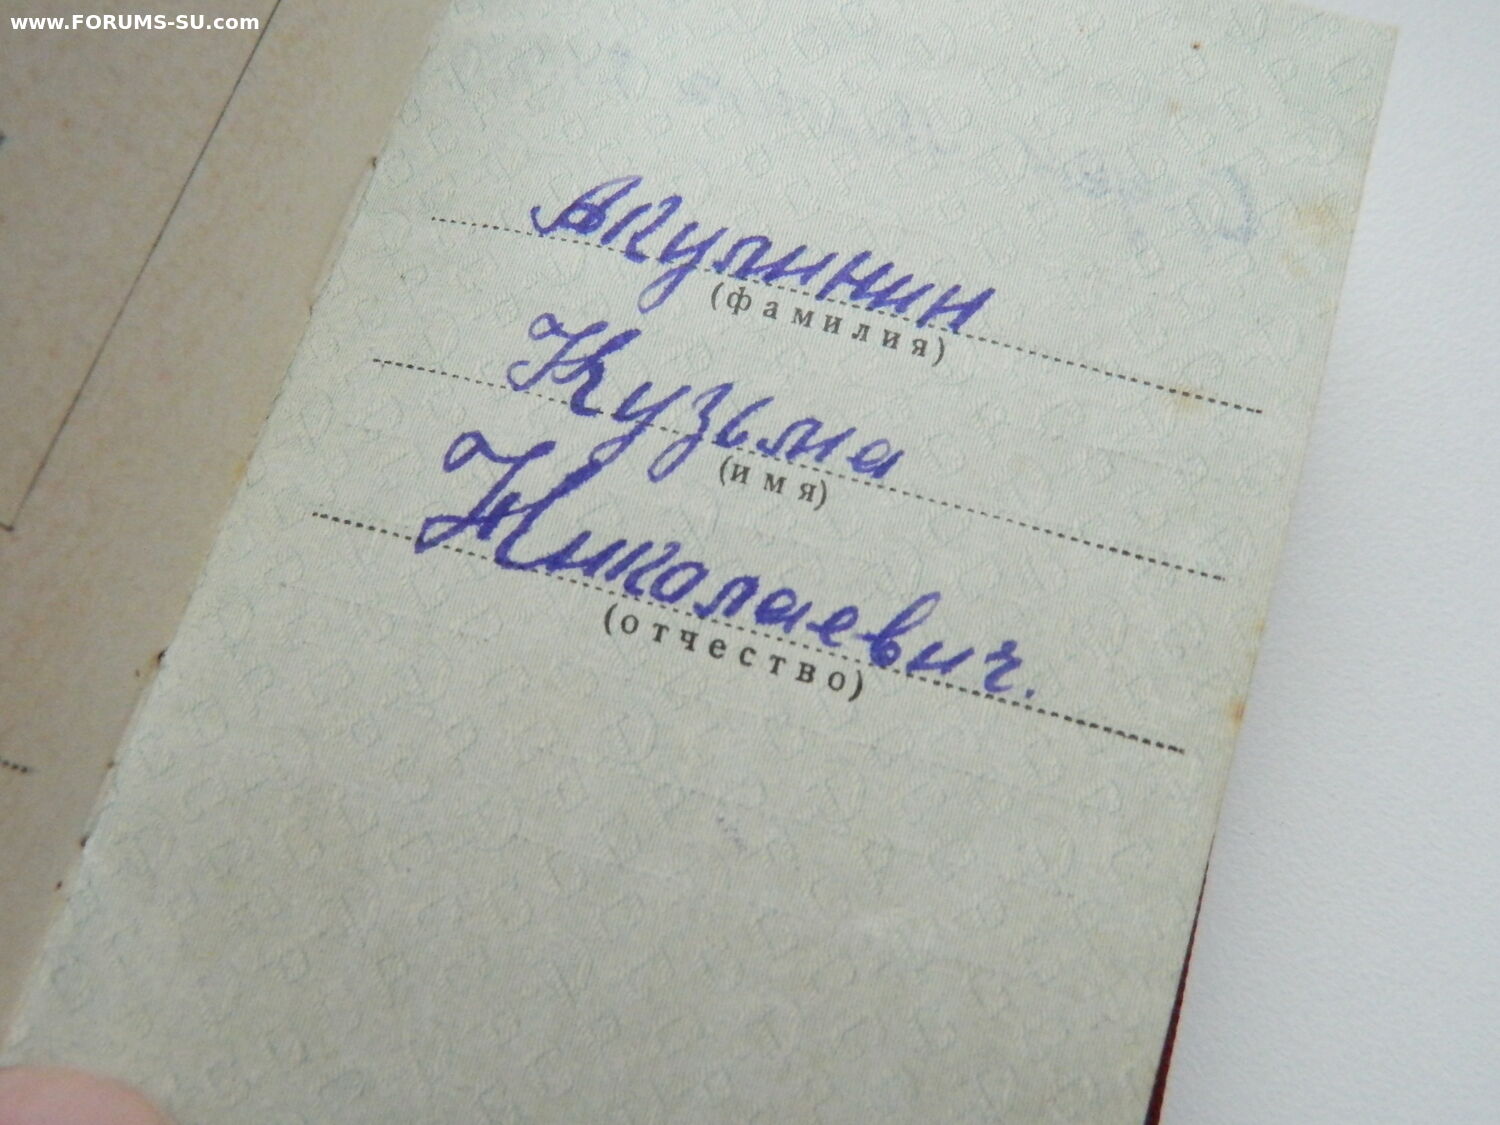 www.FORUMS-SU.com
Акулинин
(фамилия)
Кузьма
(имя)
Николаевич.
(отчество)